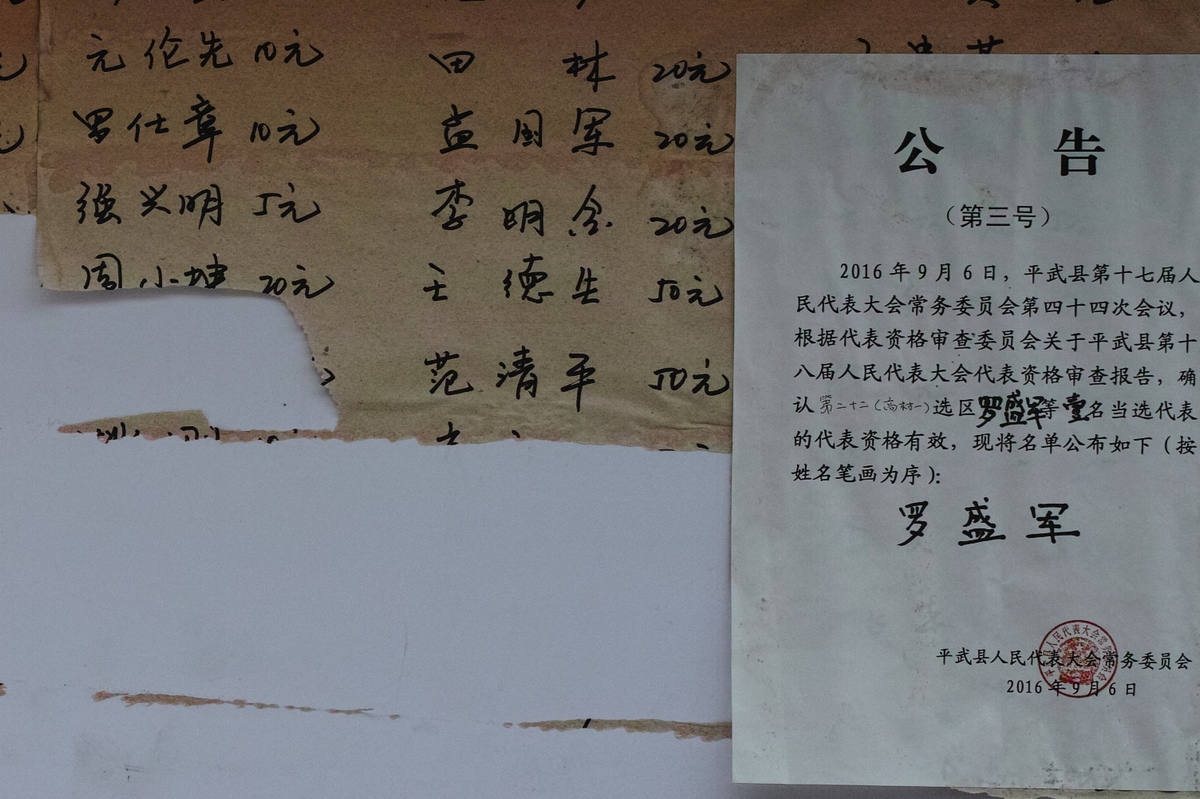 元伦先 10元
罗仕章 10元
强兴明 5元
周小坤 20元
田林 20元
孟国军 20元
李明念 20元
王德生 50元
范清平 50元
公告
（第三号）
2016年9月6日，平武县第十七届人
民代表大会常务委员会第四十四次会议，
根据代表资格审查委员会关于平武县第十
八届人民代表大会代表资格审查报告，确
认第二十二（高村一）选区罗盛军等壹名当选代表
的代表资格有效，现将名单公布如下（按
姓名笔画为序）：
罗盛军
平武县人民代表大会常务委员会
2016年9月6日